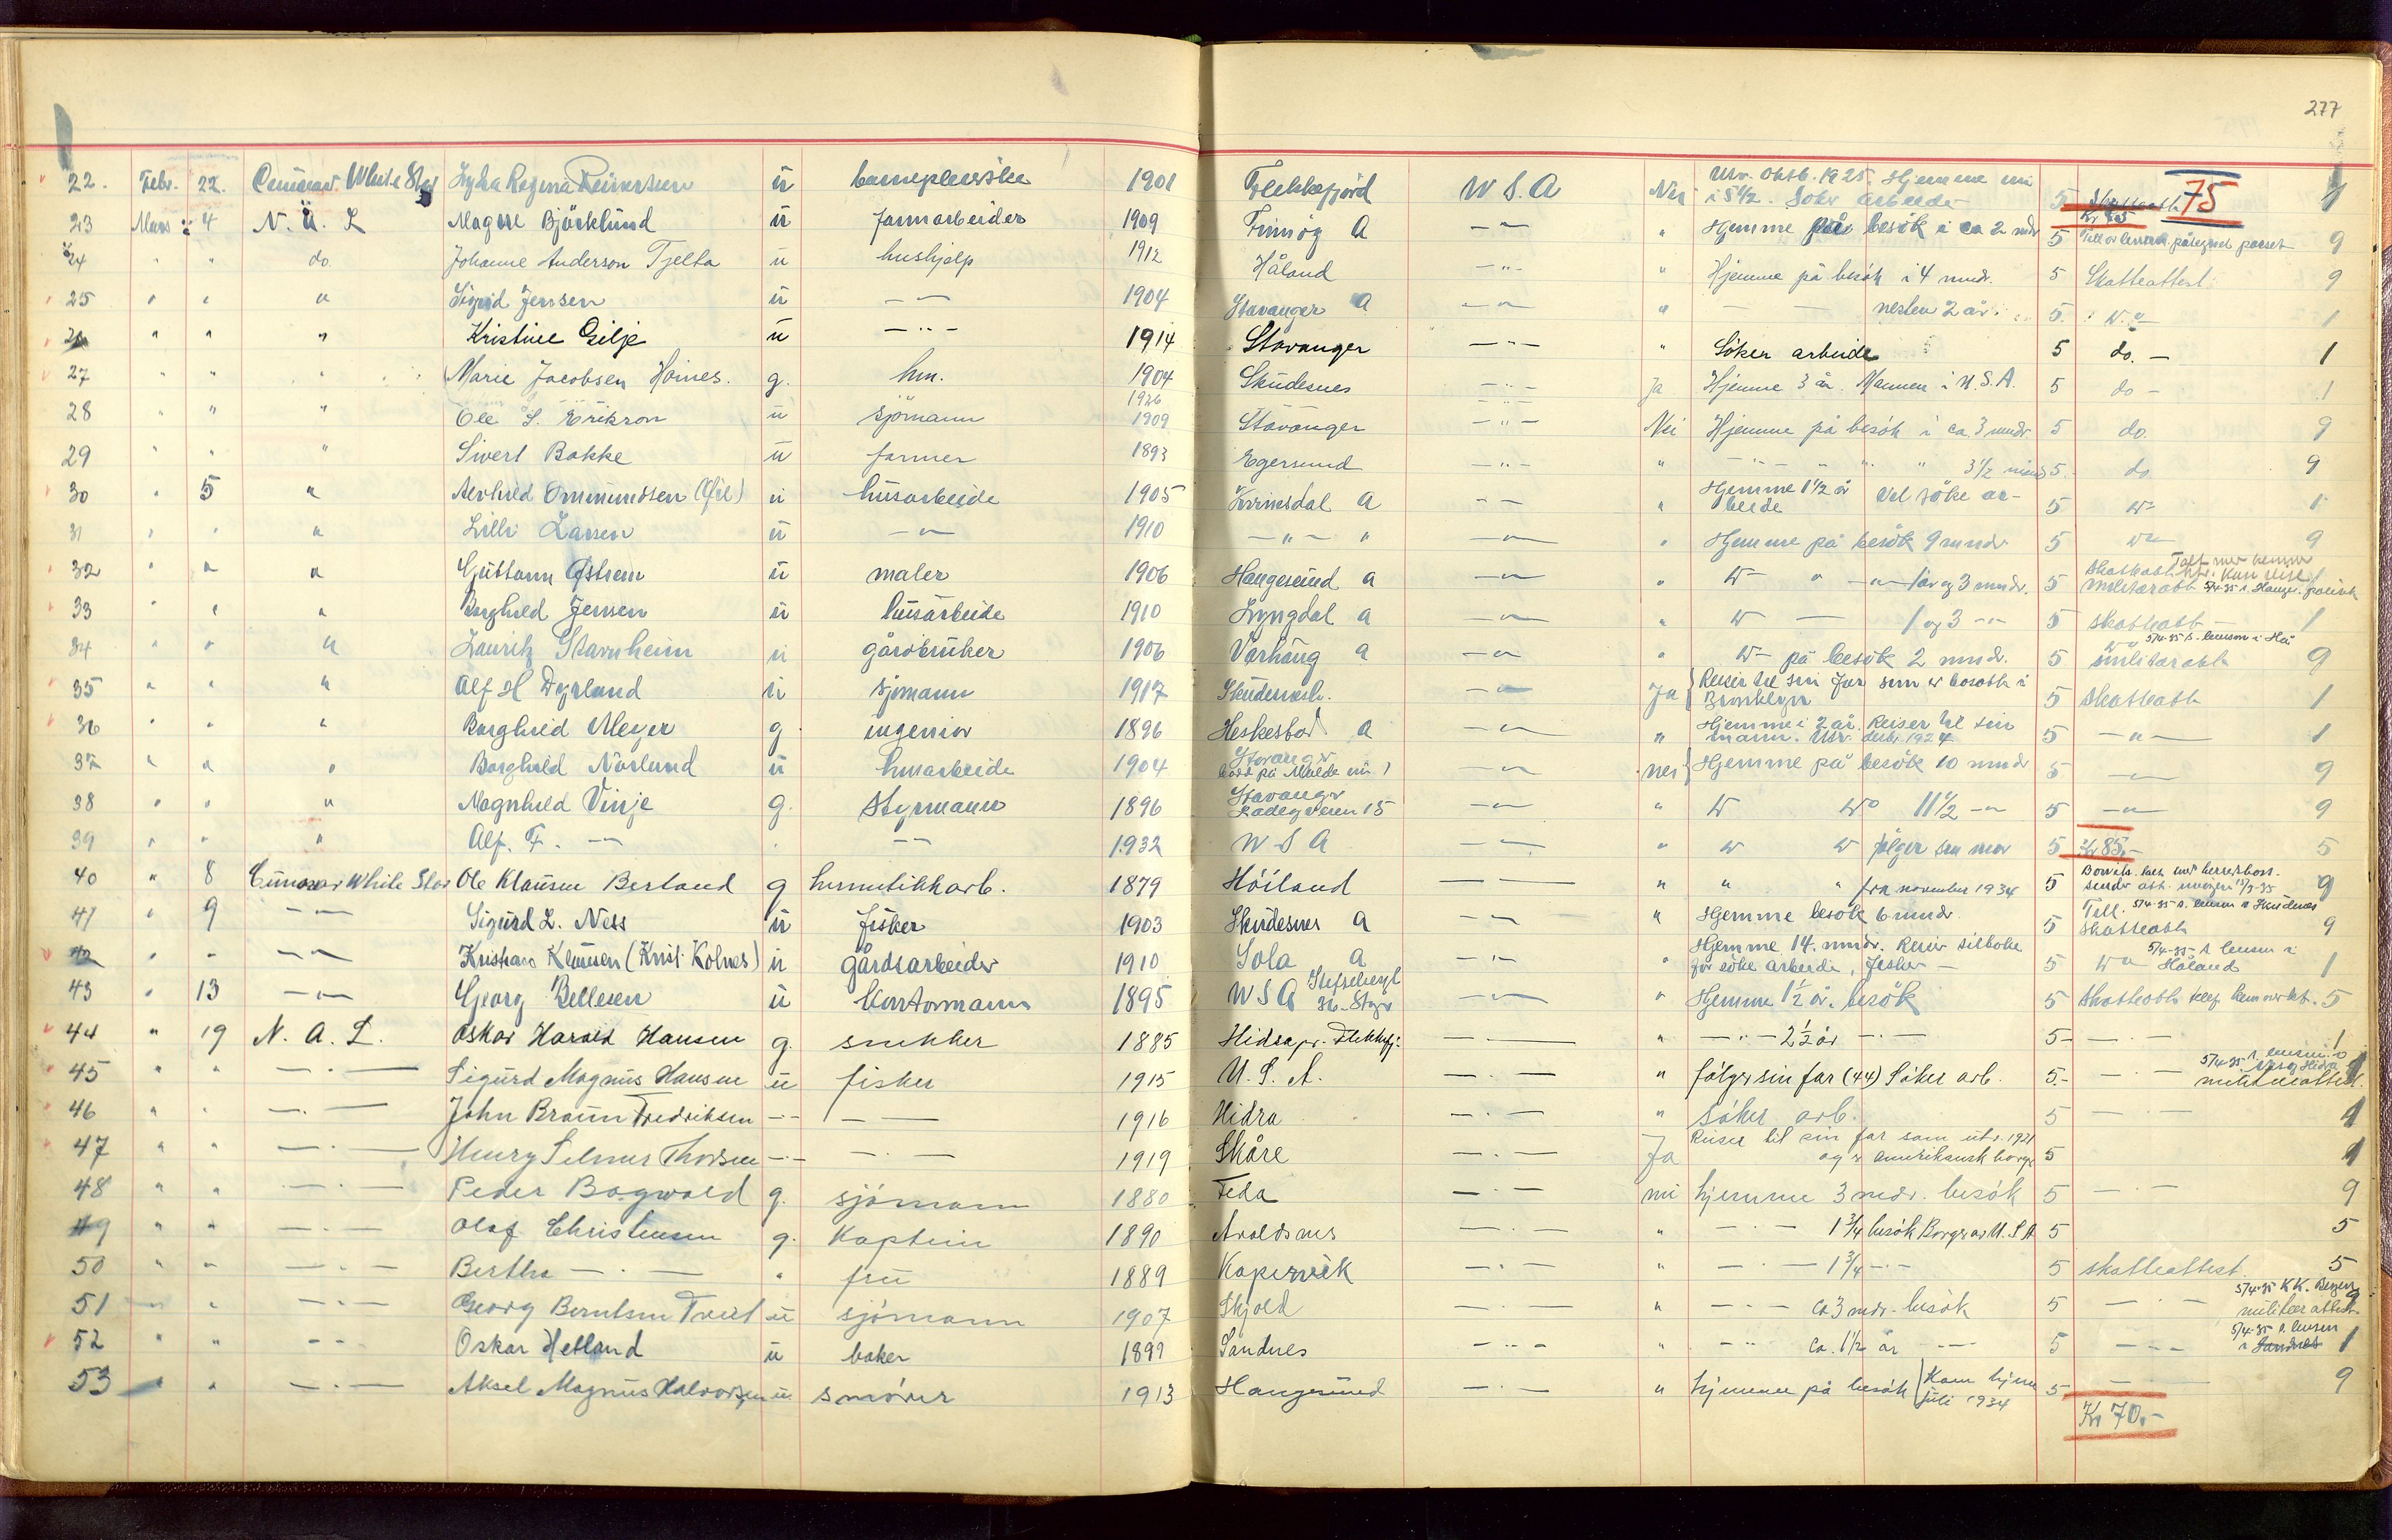 277
22. Febr. 22. Cunard White Star Lydia Regina Reinersen ü barnepleierske 1901 Flekkefjord U S. A Nei Utv. Oktb. 1925. Hjemme i 5 1/2. Søker arbeide 5 Skatteatt 75 1
Kr 75
23 Mars 4 N. A. L Magne Bjørklund ü farmarbeider 1909 Finnøy A — " — " Hjemme på besøk i ca 2 mdr 5 påtegnet passet 9
24 " " do. Johanne Anderson Tjelta ü hushjelp 1912 Håland — " — " Hjemme på besøk i 4 mndr. 5 Skatteattest. 9
25 " " " Sigrid Jensen ü — " — 1904 Stavanger A — " — " — nesten 2 år. 5. " 1
26 " " " Kristine Gilje ü — " — 1914 Stavanger — " — " Søker arbeide 5 do. — 1
27 " " " Marie Jacobsen Hoines. g. hm. 1904 Skudesnes — " — Ja Hjemme 3 år. Mannen i U.S.A. 5 do — 1
1926
28 " " " Ole S. Erikson ü sjømann 1909 Stavanger — " — Nei Hjemme på besøk i ca. 3 mndr 5 do. 9
29 " " " Sivert Bakke ü farmer 1893 Egersund — " — " — " — " " " 3 1/2 mnd 5. do 9
30 " 5 " Ommundsen ü husarbeide 1905 Kvinesdal A — " — " Hjemme 1 1/2 år Vil søke ar-
beide 5 " 1
31 " " " Lilli Larsen ü — " — 1910 — " — " — " — " Hjemme på besøk 9 mndr 5 " 9
32 " " " Guttorm Østrem ü maler 1906 Haugesund a — " — " " " — " — 1 år og 3 mndr. 5 Skatteatt militæratt 5/4-35 1
33 " " " Borghild Jensen ü husarbeide 1910 Lyngdal a — " — " " — 1 og 3 — " — 5 skatteatt — 1
34 " " " Lauritz Stavnheim ü gårdbruker 1906 Varhaug a — " — " " på besøk 2 mndr. 5 militæratt 9
5/4-35 s. lensm i Hå
35 " " " Alf H Dyrland ü sjømann 1917 Skudenesh. — " — Ja Reiser til sin far som er bosatt i
Brooklyn 5 skatteatt 1
36 " " " Borghild Meyer g. ingeniør 1896 Heskestad a — " — " Hjemme i 2 år. Reiser til sin
mann. Utv. 1924 5 — " — 1
37 " " " Borghild Nårlund ü husarbeide 1904 Stavanger
— " — nei Hjemme på besøk 10 mndr 5 — " — 9
38 " " " Magnhild Vinje g. styrmann 1896 Stavanger
15 — " — " " " 11 1/2 — " — 5 — " — 9
39 " " " Alf. F. — " — " — " — 1932 U S A — " — " " " følger sin mor 5 Kr 85.- 5
40 " 8 Cunard White Star Ole Klausen Berland g hermetikkarb. 1879 Höiland — " — " " " fra november 1934 5 9
41 " 9 — " — Sigurd L. Ness ü fisker 1903 Skudesnes a — " — " Hjemme besøk 6 mndr. 5 Skatteatt 9
5/4-35 s. lensm i Skudenes
42 " " — " — Kristian Klausen (Krist. Kolnes) ü gårdsarbeider 1910 Sola a — " — " Hjemme 14. mndr. Reiser tilbake
for å søke arbeide, fisker — 5 Håland 1
5/4-35 s. lensm i
43 " 13 — " — Georg Bellesen ü Kontormann 1895 U S A — " — " Hjemme 1 1/2 år. besøk 5 Skatteatt 5
44 " 19 N. A. L. Oskar Harald Hansen g. snekker 1885 Hidra pr. Flekkefj. — " — " — " — 2 1/2 år — " — 5 — " — 1
45 " " — " — Sigurd Magnus Hansen ü fisker 1915 U. S. A. — " — " følger sin far (44) Søker arb. 5.- — " — militærattest. 1
46 " " — " — John Braun Fredriksen — " — — " — 1916 Hidra — " — " Søker arb. 5 — " — 1
47 " " — " — Henry Selmer Thorsen — " — — " — 1919 Skåre — " — Ja Reiser til sin far som utv. 1921
og er amerikansk borger 5 1
48 " " — " — Peder Bagwald g. sjømann 1880 Feda — " — nei hjemme 3 mdr. besøk 5 — " — 9
49 " " — " — Olaf Christensen g. Kaptein 1890 Avaldsnes — " — " — " — 1 3/4 besøk Borger av U. S. A 5 5
50 " " — " — Bertha — " — " fru 1889 Kopervik — " — " — " — 1 3/4 — " — 5 skatteattest 5
51 " " — " — Georg Berntsen Tveit ü sjømann 1907 Skjold — " — " — " — ca 3 mdr. besøk 5 — " — militær attest
5/4-35 KK. Bergen 9
52 " " — " — Oskar Hetland ü baker 1899 Sandnes — " — " — " — ca. 1 1/2 år — " — 5 — " — 1
5/4-35 s. lensm
i Sandnes
53 " " — " — Aksel Magnus Halvorsen ü. smører 1913 Haugesund — " — " hjemme på besøk Kom hjem
juli 1934 5 — " — 9
Kr 70.-